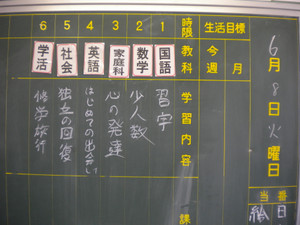 6月8日火曜日
当番
生活目標
今週
月
時限
教科
学習内容
1
国語
習字
2
数学
少人数
3
家庭科
心の発達
4
英語
はじめての出会い
5
社会
独立の回復
6
学活
修学旅行
課